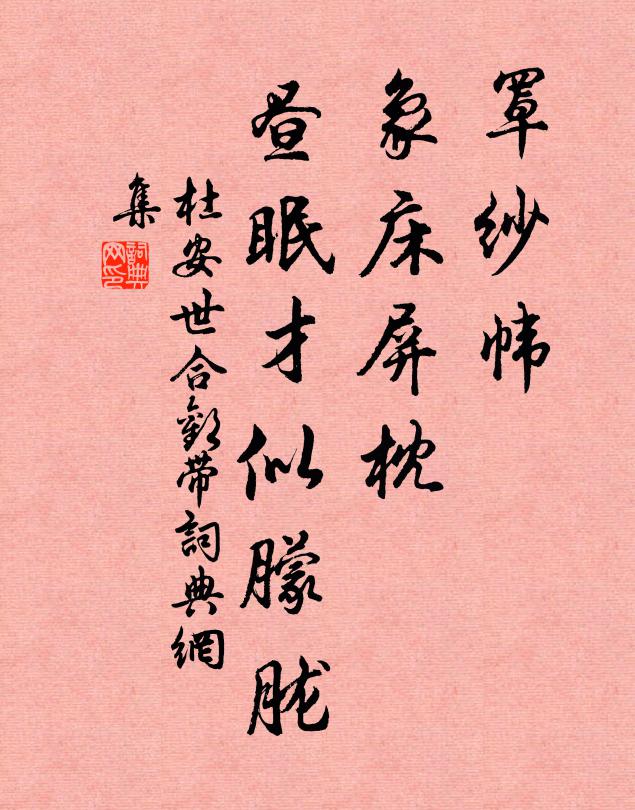 罩纱帏
象床屏枕
昼眠才似朦胧
杜安世合歡带詞典網
集
詞典
网印